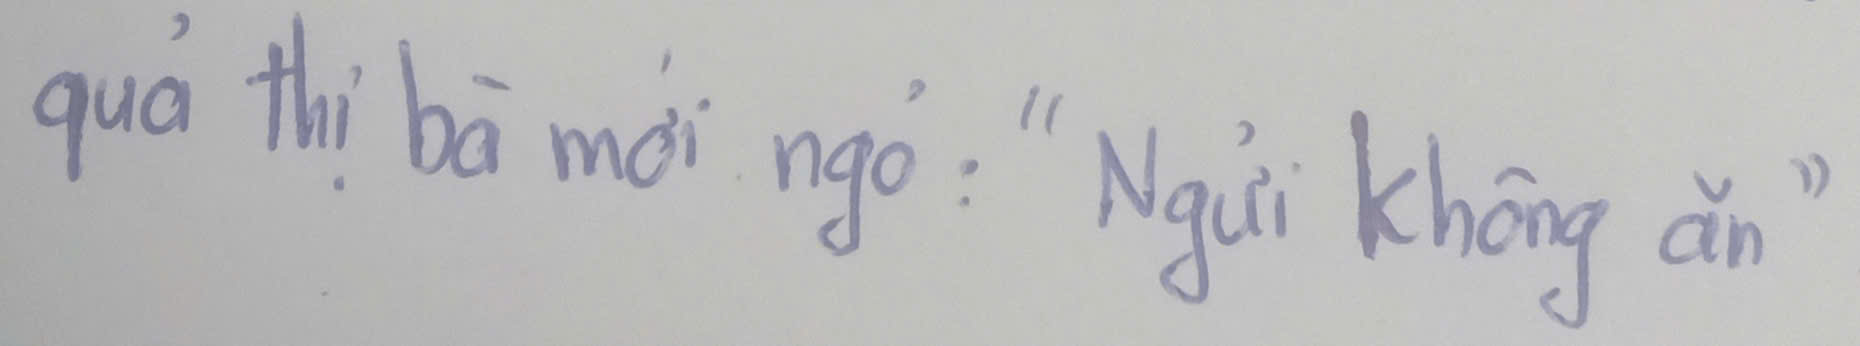 quả thị bà mới ngỏ: "Ngửi không ăn"